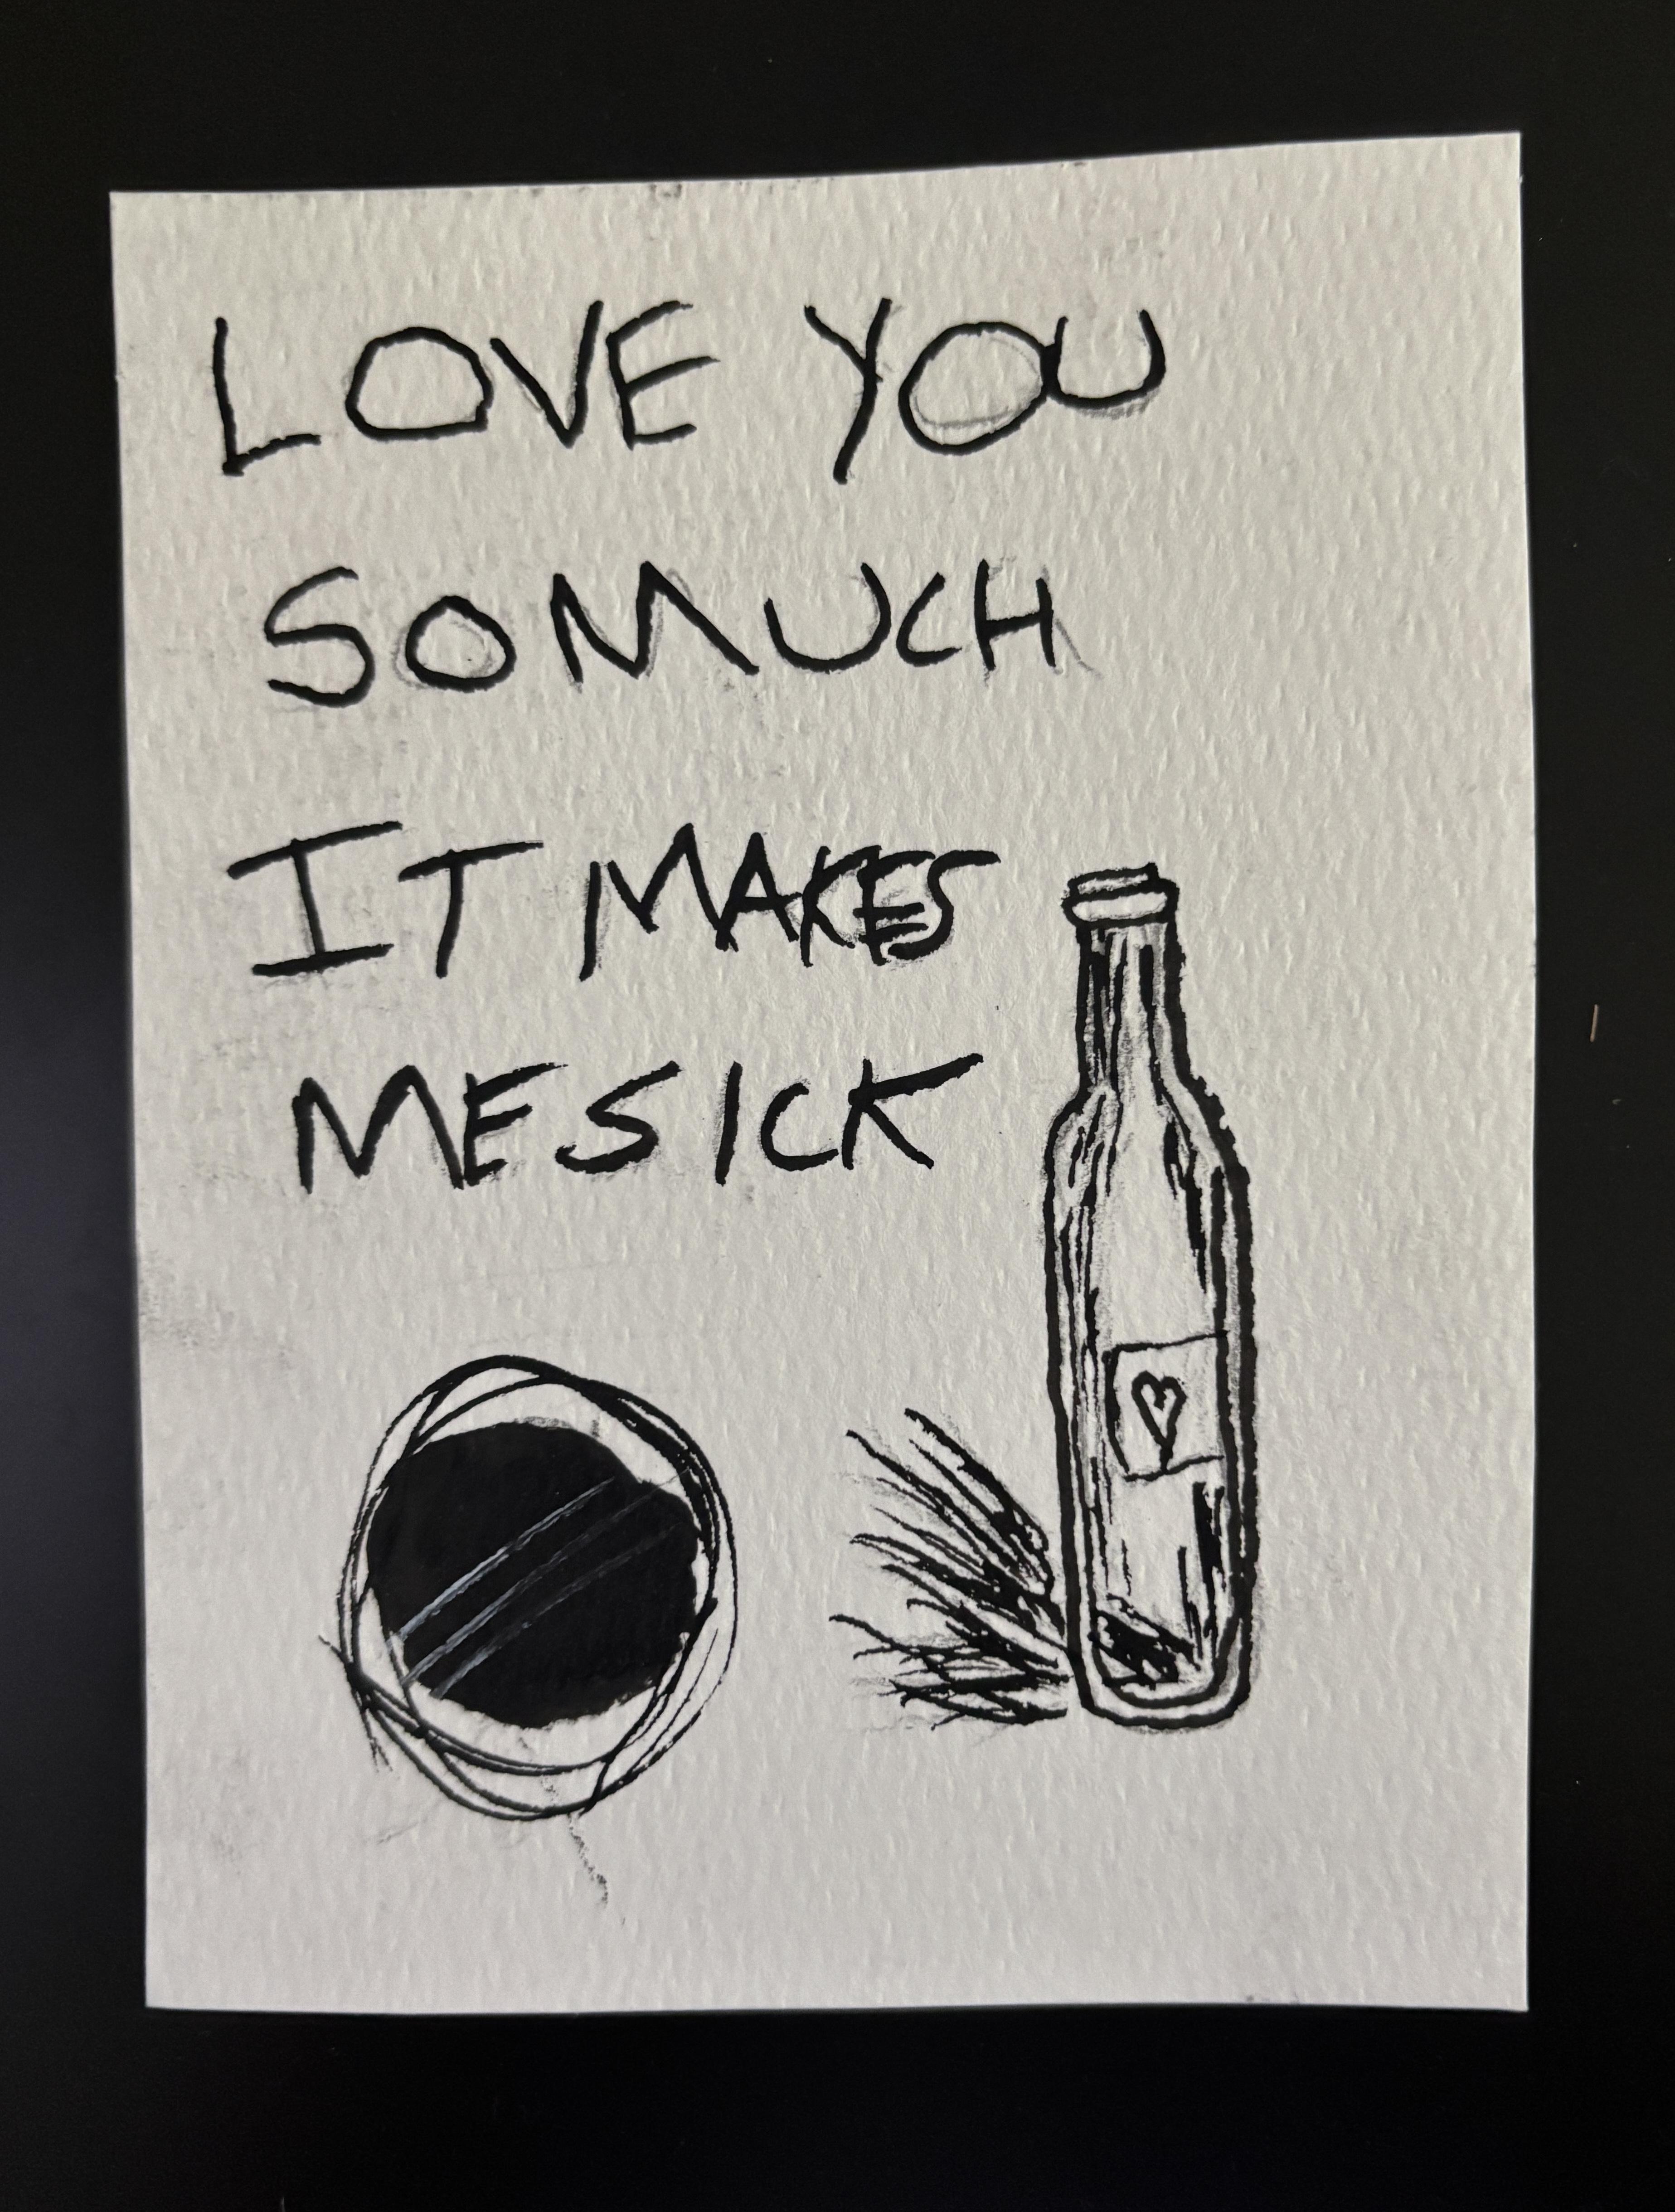 LOVE YOU
SO MUCH
IT MAKES
ME SICK